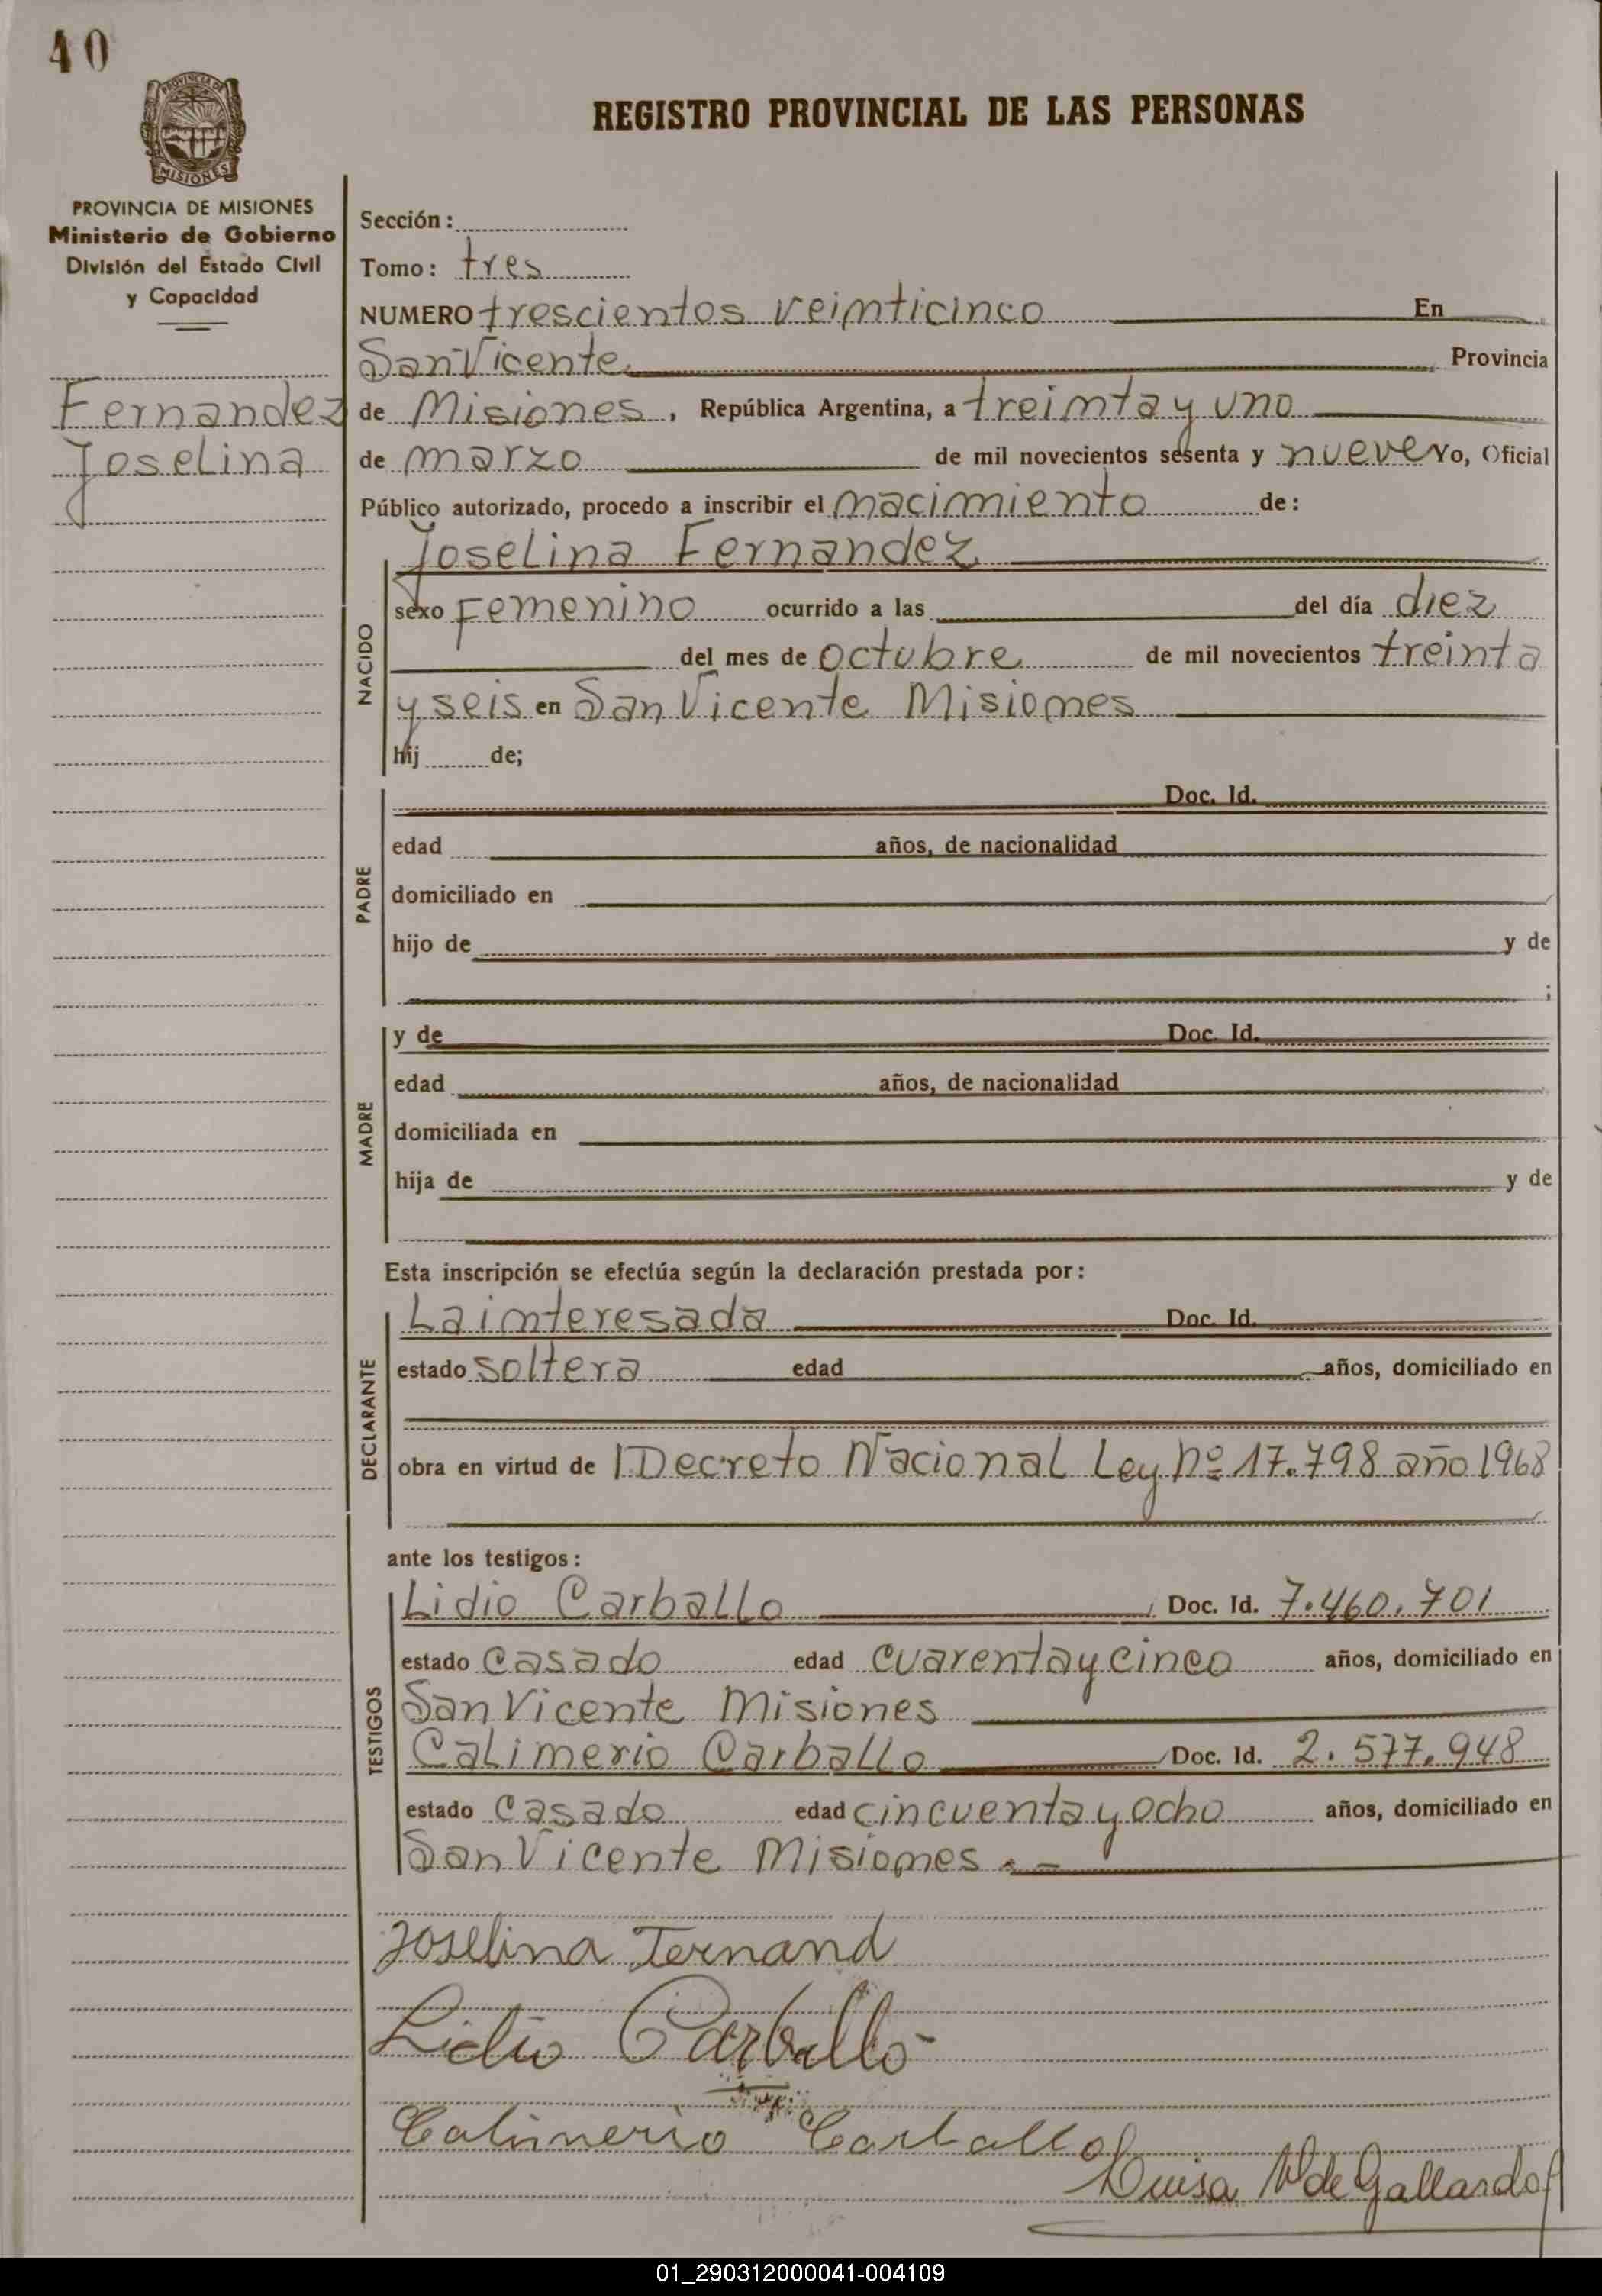 40
PROVINCIA DE
MISIONES
REGISTRO PROVINCIAL DE LAS PERSONAS
PROVINCIA DE MISIONES
Ministerio de Gobierno
División del Estado Civil
y Capacidad
Fernandez
Joselina
Sección:
Tomo: tres
NUMERO trescientos veinticinco En
San Vicente Provincia
de Misiones, República Argentina, a treinta y uno
de marzo de mil novecientos sesenta y nueve Yo, Oficial
Público autorizado, procedo a inscribir el nacimiento de:
NACIDO
Joselina Fernandez
sexo Femenino ocurrido a las del día diez
del mes de octubre de mil novecientos treinta
y seis en San Vicente Misiones
hij de;
PADRE
Doc. Id.
edad años, de nacionalidad
domiciliado en
hijo de y de
;
MADRE
y de Doc. Id.
edad años, de nacionalidad
domiciliada en
hija de y de
Esta inscripción se efectúa según la declaración prestada por:
DECLARANTE
La interesada Doc. Id.
estado soltera edad años, domiciliado en
obra en virtud de Decreto Nacional Ley Nº 17.798 año 1968
ante los testigos:
TESTIGOS
Lidio Carballo Doc. Id. 7.460.701
estado casado edad cuarenta y cinco años, domiciliado en
San Vicente Misiones
Calimerio Carballo Doc. Id. 2.577.948
estado casado edad cincuenta y ocho años, domiciliado en
San Vicente Misiones.-
Joselina Fernand
Lidio Carballo
Calimerio Carballo
Luisa V de Gallardo
01_290312000041-004109